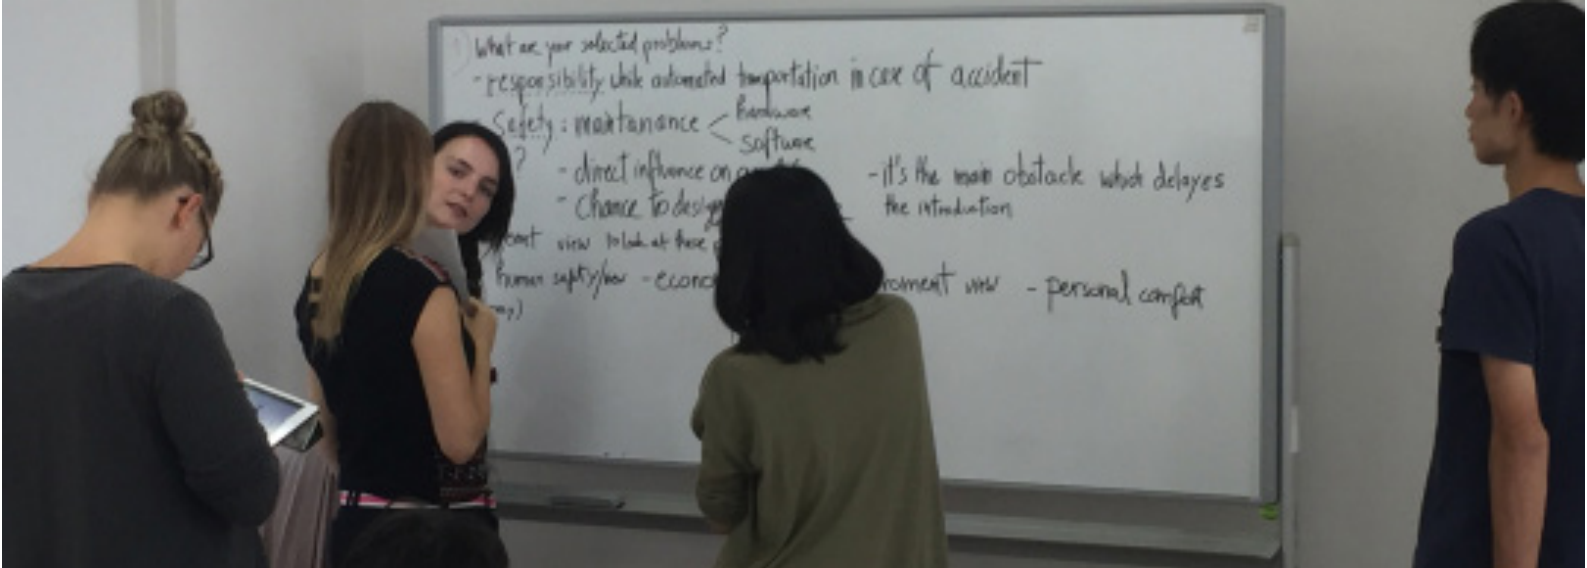 1) What are your selected problems?
- responsibility while automated transportation in case of accident
Safety : maintanance < hardware
software
?
- direct influence on
- it's the main obstacle which delayes
- Chance to design
the introduction
view to look at these
human safety/how - econo
view - personal comfort